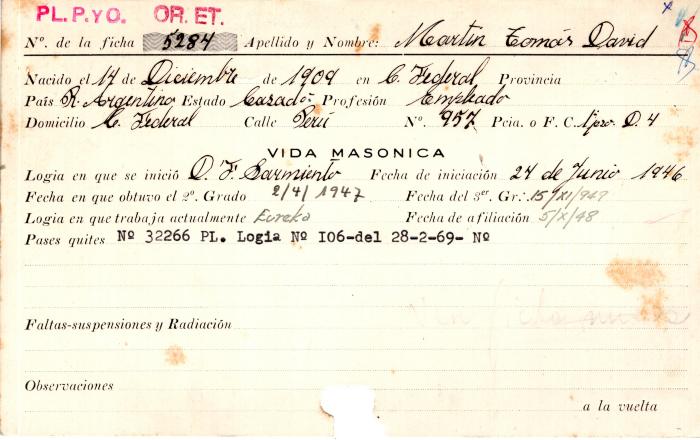 PL. P. y O. OR. ET.
Nº. de la ficha 5284 Apellido y Nombre: Martin Tomás David
Nacido el 14 de Diciembre de 1909 en C. Federal Provincia
País R. Argentina Estado Casado Profesión Empleado
Domicilio C. Federal Calle Perú Nº. 957 Pcia. o F. C. 1 piso D. 4
VIDA MASONICA
Logia en que se inició D. F. Sarmiento Fecha de iniciación 24 de Junio 1946
Fecha en que obtuvo el 2º. Grado 2/4/1947 Fecha del 3er. Gr.: 15/XI/947
Logia en que trabaja actualmente Eureka Fecha de afiliación 5/X/48
Pases quites Nº 32266 PL. Logia Nº I06-del 28-2-69- Nº
Faltas-suspensiones y Radiación
Observaciones
a la vuelta